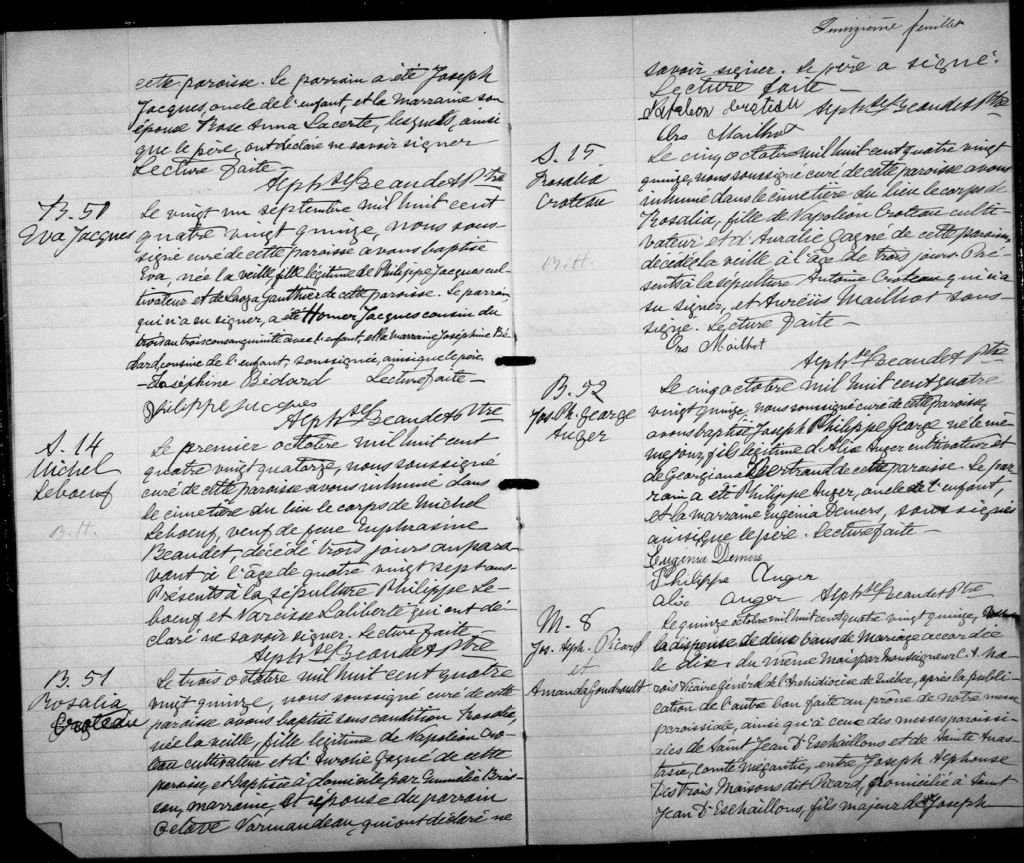 cette paroisse. Le parrain a été Joseph
Jacques, oncle de l'enfant, et la marraine son
épouse Rose Anna Lacerte, lesquels, ainsi
que le père, ont déclaré ne savoir signer
Lecture faite —
Alphse Beaudet Ptre
B. 50
Eva Jacques
Le vingt un septembre mil huit cent
quatre vingt quinze, nous sous-
signé curé de cette paroisse avons baptisé
Eva, née la veille, fille légitime de Philippe Jacques cul-
tivateur et de Gauthier de cette paroisse. Le parrain
qui n'a su signer, a été Homer Jacques cousin du
trois au trois consanguinité avec l'enfant et la marraine Joséphine Bé-
dard, cousine de l'enfant, soussignée, ainsi que le père.
— Joséphine Bédard Lecture faite —
Philippe Jacques
Alphse Beaudet Ptre
S. 14
Michel
Leboeuf
B. H.
Le premier octobre mil huit cent
quatre vingt quatorze, nous soussigné
curé de cette paroisse avons inhumé dans
le cimetière du lieu le corps de Michel
Leboeuf, veuf de feue Euphrasine
Beaudet décédé trois jours aupara-
vant à l'âge de quatre vingt sept ans
Présents à la sépulture Philippe Le-
boeuf et Narcisse Laliberté qui ont dé-
claré ne savoir signer. Lecture faite —
Alphse Beaudet Ptre
B. 51
Rosalia
Croteau
Le trois octobre mil huit cent quatre
vingt quinze, nous soussigné curé de cette
paroisse avons baptisé sous condition Rosalia,
née la veille, fille légitime de Napoléon Cro-
teau cultivateur et d'Aurélie Gagné de cette
paroisse, et baptisée à domicile par Emmélie Bris-
son, marraine, et épouse du parrain
Octave Normandeau, qui ont déclaré ne
Quinzième feuillet
savoir signer. Le père a signé.
Lecture faite —
Napoleon croteau Alphse Beaudet Ptre
Ors Mailhot
S. 15
Rosalia
Croteau
B. H.
Le cinq octobre mil huit cent quatre vingt
quinze, nous soussigné curé de cette paroisse avons
inhumé dans le cimetière du lieu le corps de
Rosalia, fille de Napoléon Croteau culti-
vateur et d'Auralie Gagné de cette paroisse,
décédée la veille à l'âge de trois jours. Pré-
sents à la sépulture Antoine Croteau qui n'a
su signer, et Auréüs Mailhot sous-
signé. Lecture faite —
Ors Mailhot
Alphse Beaudet Ptre
B. 52
Jos. Ph. George
Auger
Le cinq octobre mil huit cent quatre
vingt quinze, nous soussigné curé de cette paroisse,
avons baptisé Joseph Philippe George né le mê-
me jour, fils légitime d'Alix Auger cultivateur et
de Georgiana Bertrand de cette paroisse. Le par-
rain a été Philippe Auger, oncle de l'enfant,
et la marraine Eugénia Demers, soussignés
ainsi que le père. Lecture faite —
Eugénia Demers
Philippe Auger
Alix Auger Alphse Beaudet Ptre
M. 8
Jos. Alph. Picard
et
Amanda Goudreault
Le quinze octobre mil huit cent quatre vingt quinze,
la dispense de deux bans de Mariage accordée
le dix du même mois par Monseigneur C. A. Ma-
rois Vicaire Général de l'Archidiocèse de Québec, après la publi-
cation de l'autre ban faite au prône de notre messe
paroissiale, ainsi qu'à ceux des messes paroissi-
ales de Saint Jean D'Eschaillons et de Sainte Anas-
tasie, Comté Mégantic, entre Joseph Alphonse
Des Trois Maisons dit Picard, domicilié à Saint
Jean D'Eschaillons, fils majeur de Joseph